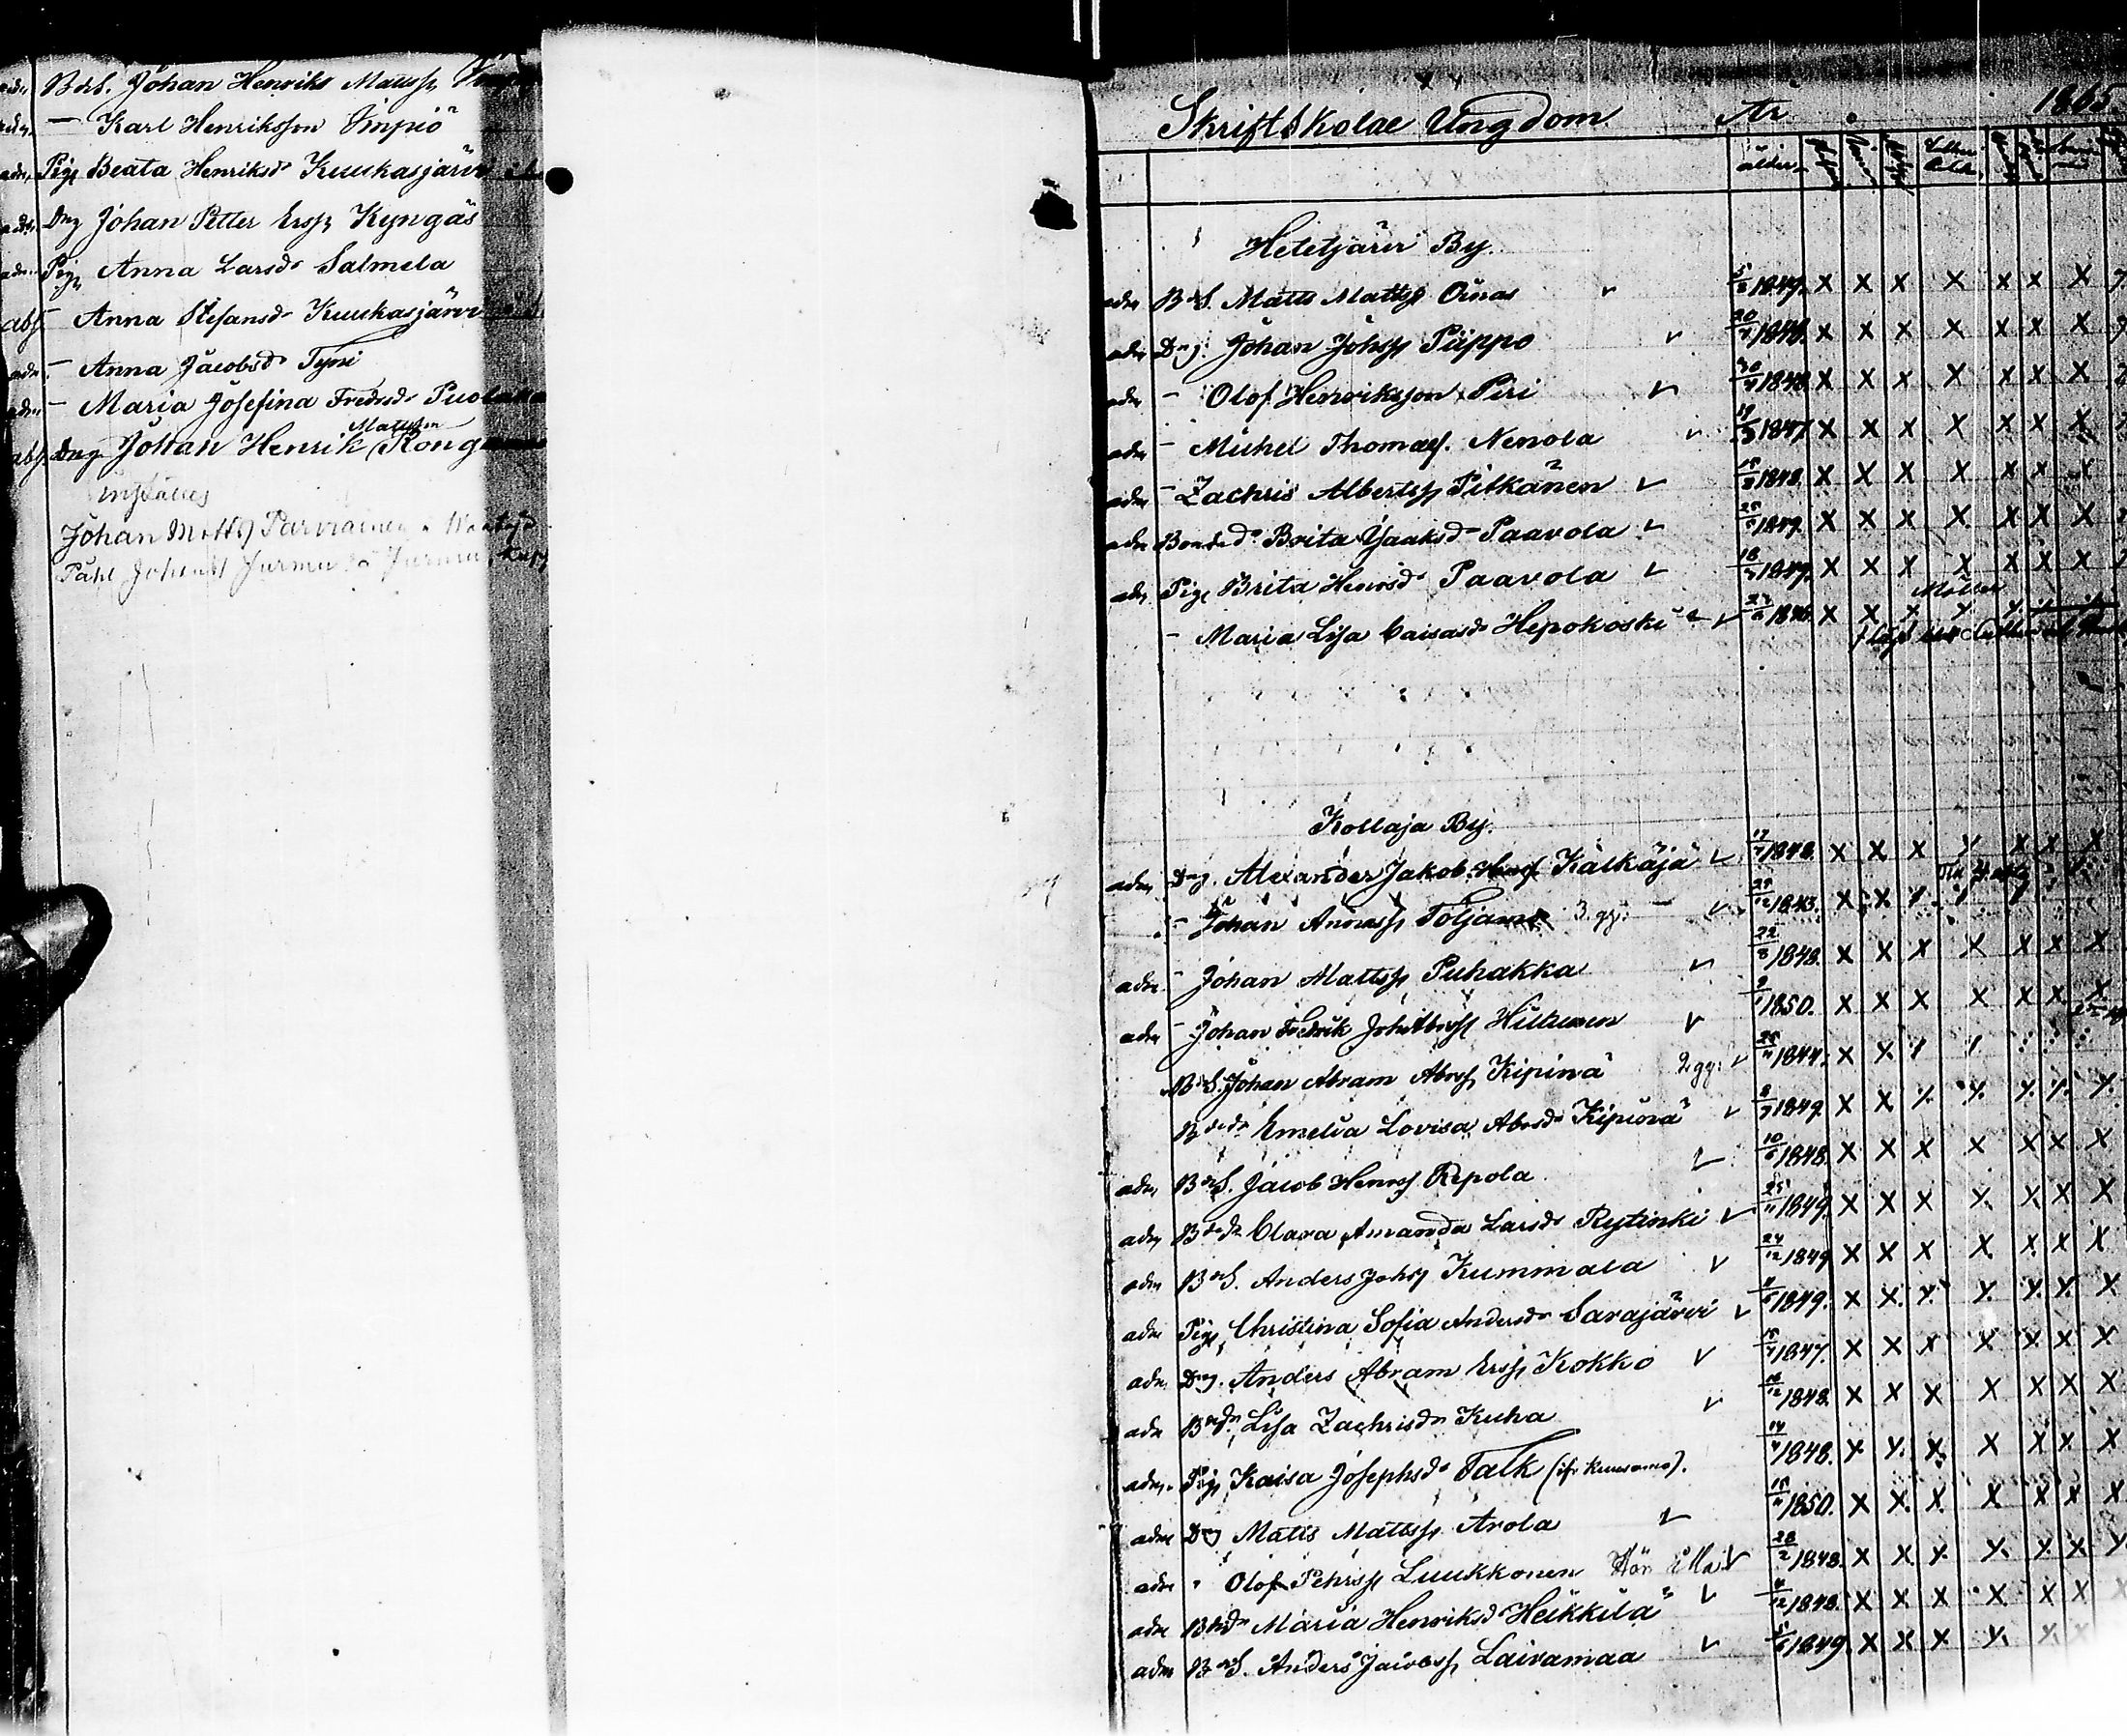 adm. Bds. Johan Henriks Mattss
adm. — Karl Henriksson Impiö
adm. Pig. Beata Henriksdr Kuukasjärvi
adm. Dng Johan Petter Erss. Kyngäs
adm. Pig. Anna Larsdr Salmela
abs. — Anna Stefansdr Kuukasjärvi
adm. — Anna Jacobsdr Tyni
adm. — Maria Josefina Fredrsdr Puolakka
Mattsson
abs. Dng Johan Henrik Rong
Johan Matts Parviainen
Påhl Johanss Jurmu Jurmu
Skriftskolae Ungdom År 1865.
ålder
Hetetjärvi By.
adm BdS. Matts Mattss. Oinas 5/3 1849. X X X X X X X
adm Dng. Johan Johss. Piippo 20/7 1848. X X X X X X X
adm — Olof Henriksson Piri 30/7 1848 X X X X X X X
adm — Michel Thomass. Nenola 19/3 1847 X X X X X X X
adm — Zachris Albertss. Pitkänen 15/8 1848. X X X X X X X
adm Bondedr Brita Isaaksdr Paavola 25/5 1849. X X X X X X X
adm Pig. Brita Henrsdr Paavola 18/3 1849. X X X X X X X
— Maria Lisa Caisasdr Hepokoski 27/6 1846. X X X X X
Kollaja By.
adm Dng. Alexander Jakob Henrss Kälkäjä 17/7 1848. X X X X X X X
— Johan Annass. Toljamo 3 gg: 29/12 1843. X X
adm — Johan Mattss. Puhakka 22/8 1848. X X X X X X X
adm — Johan Fredrik Joh. Albrss. Hiltunen 9/1 1850. X X X X X X X
BdS. Johan Abram Abrss. Kipinä 2 gg: 25/11 1844. X X
Bdedr Emelia Lovisa Abrsdr Kipinä 8/7 1849. X X X X X X X
adm BdS. Jacob Henrss. Repola 10/6 1848. X X X X X X X
adm Bdedr Clara Amanda Larsdr Rytinki 25/11 1849. X X X X X X X
adm BdS. Anders Johss. Kummala 24/12 1849 X X X X X X X
adm Pig. Christina Sofia Andersdr Sarajärvi 11/6 1849. X X X X X X X
adm Dng. Anders Abram Erss. Kokko 15/7 1847. X X X X X X X
adm Bdedr Lisa Zachrisdr Kuha 16/12 1848. X X X X X X X
adm. Pig. Kaisa Josephsdr Talk (ifr. Kuusamo). 14/4 1848. X X X X X X X
adm Dng Matts Mattss. Arola 15/11 1850. X X X X X X X
adm " Olof Pehrss. Luukkonen 28/2 1848. X X X X X X X
adm Bdedr Maria Henriksdr Heikkilä 11/12 1848. X X X X X X X
adm BdS. Anders Jacobss. Laivamaa 5/6 1849 X X X X X X